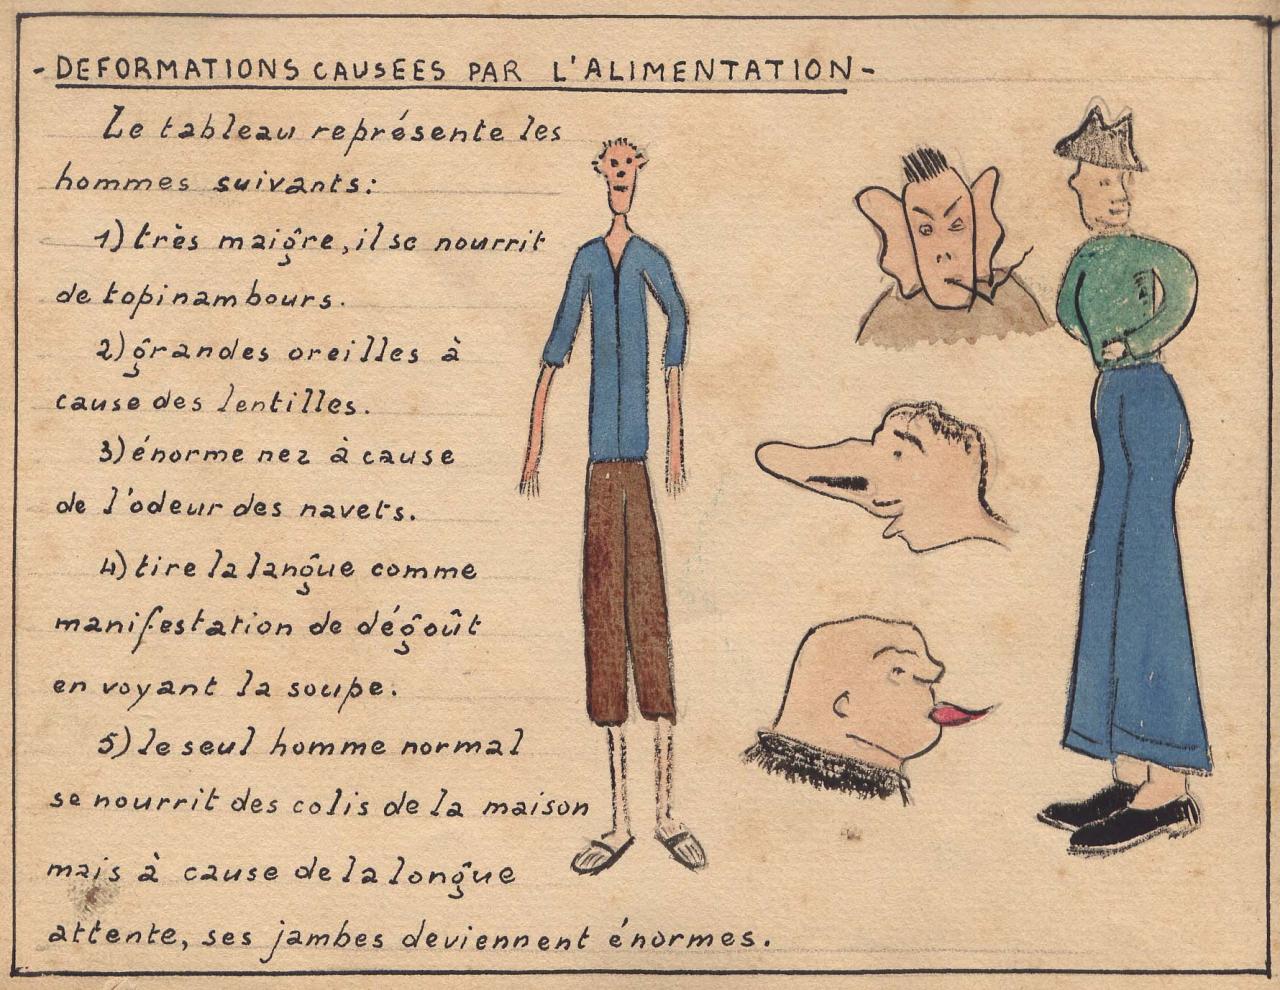 - DEFORMATIONS CAUSEES PAR L'ALIMENTATION -
Le tableau représente les
hommes suivants:
1) très maigre, il se nourrit
de topinambours.
2) grandes oreilles à
cause des lentilles.
3) énorme nez à cause
de l'odeur des navets.
4) tire la langue comme
manifestation de dégoût
en voyant la soupe.
5) le seul homme normal
se nourrit des colis de la maison
mais à cause de la longue
attente, ses jambes deviennent énormes.